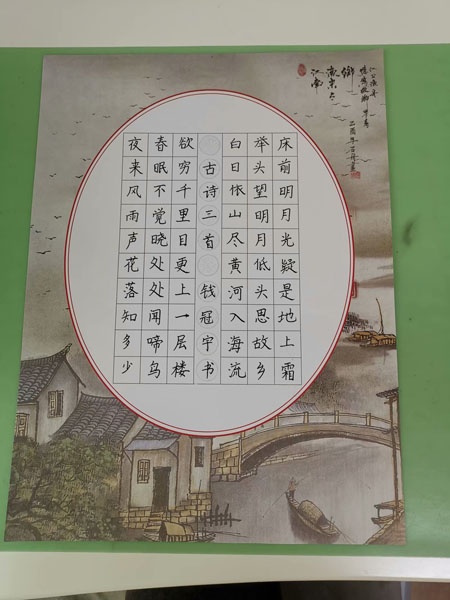 床前明月光疑是地上霜
举头望明月低头思故乡
白日依山尽黄河入海流
古诗三首 钱冠宇书
欲穷千里目更上一层楼
春眠不觉晓处处闻啼鸟
夜来风雨声花落知多少
江南